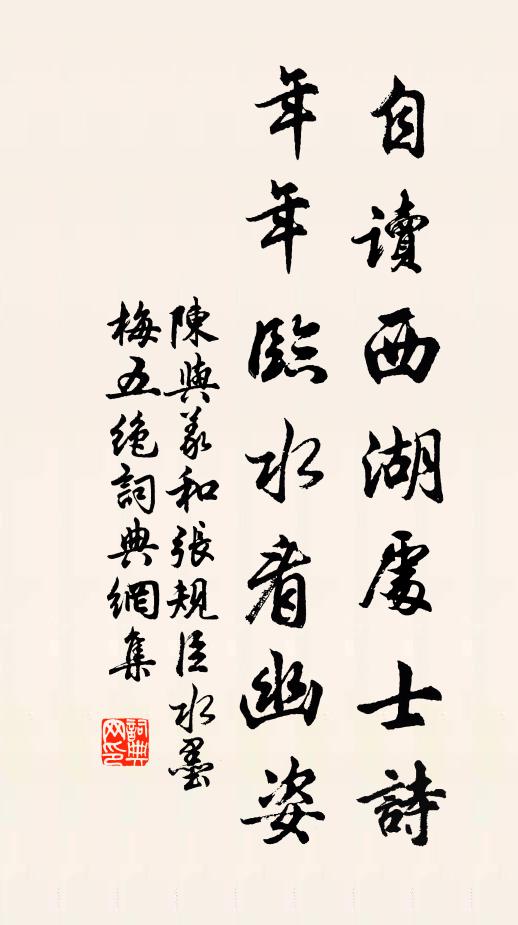 自讀西湖處士詩
年年臨水看幽姿
陳與義和張規臣水墨
梅五絕詞典網集
詞典網印